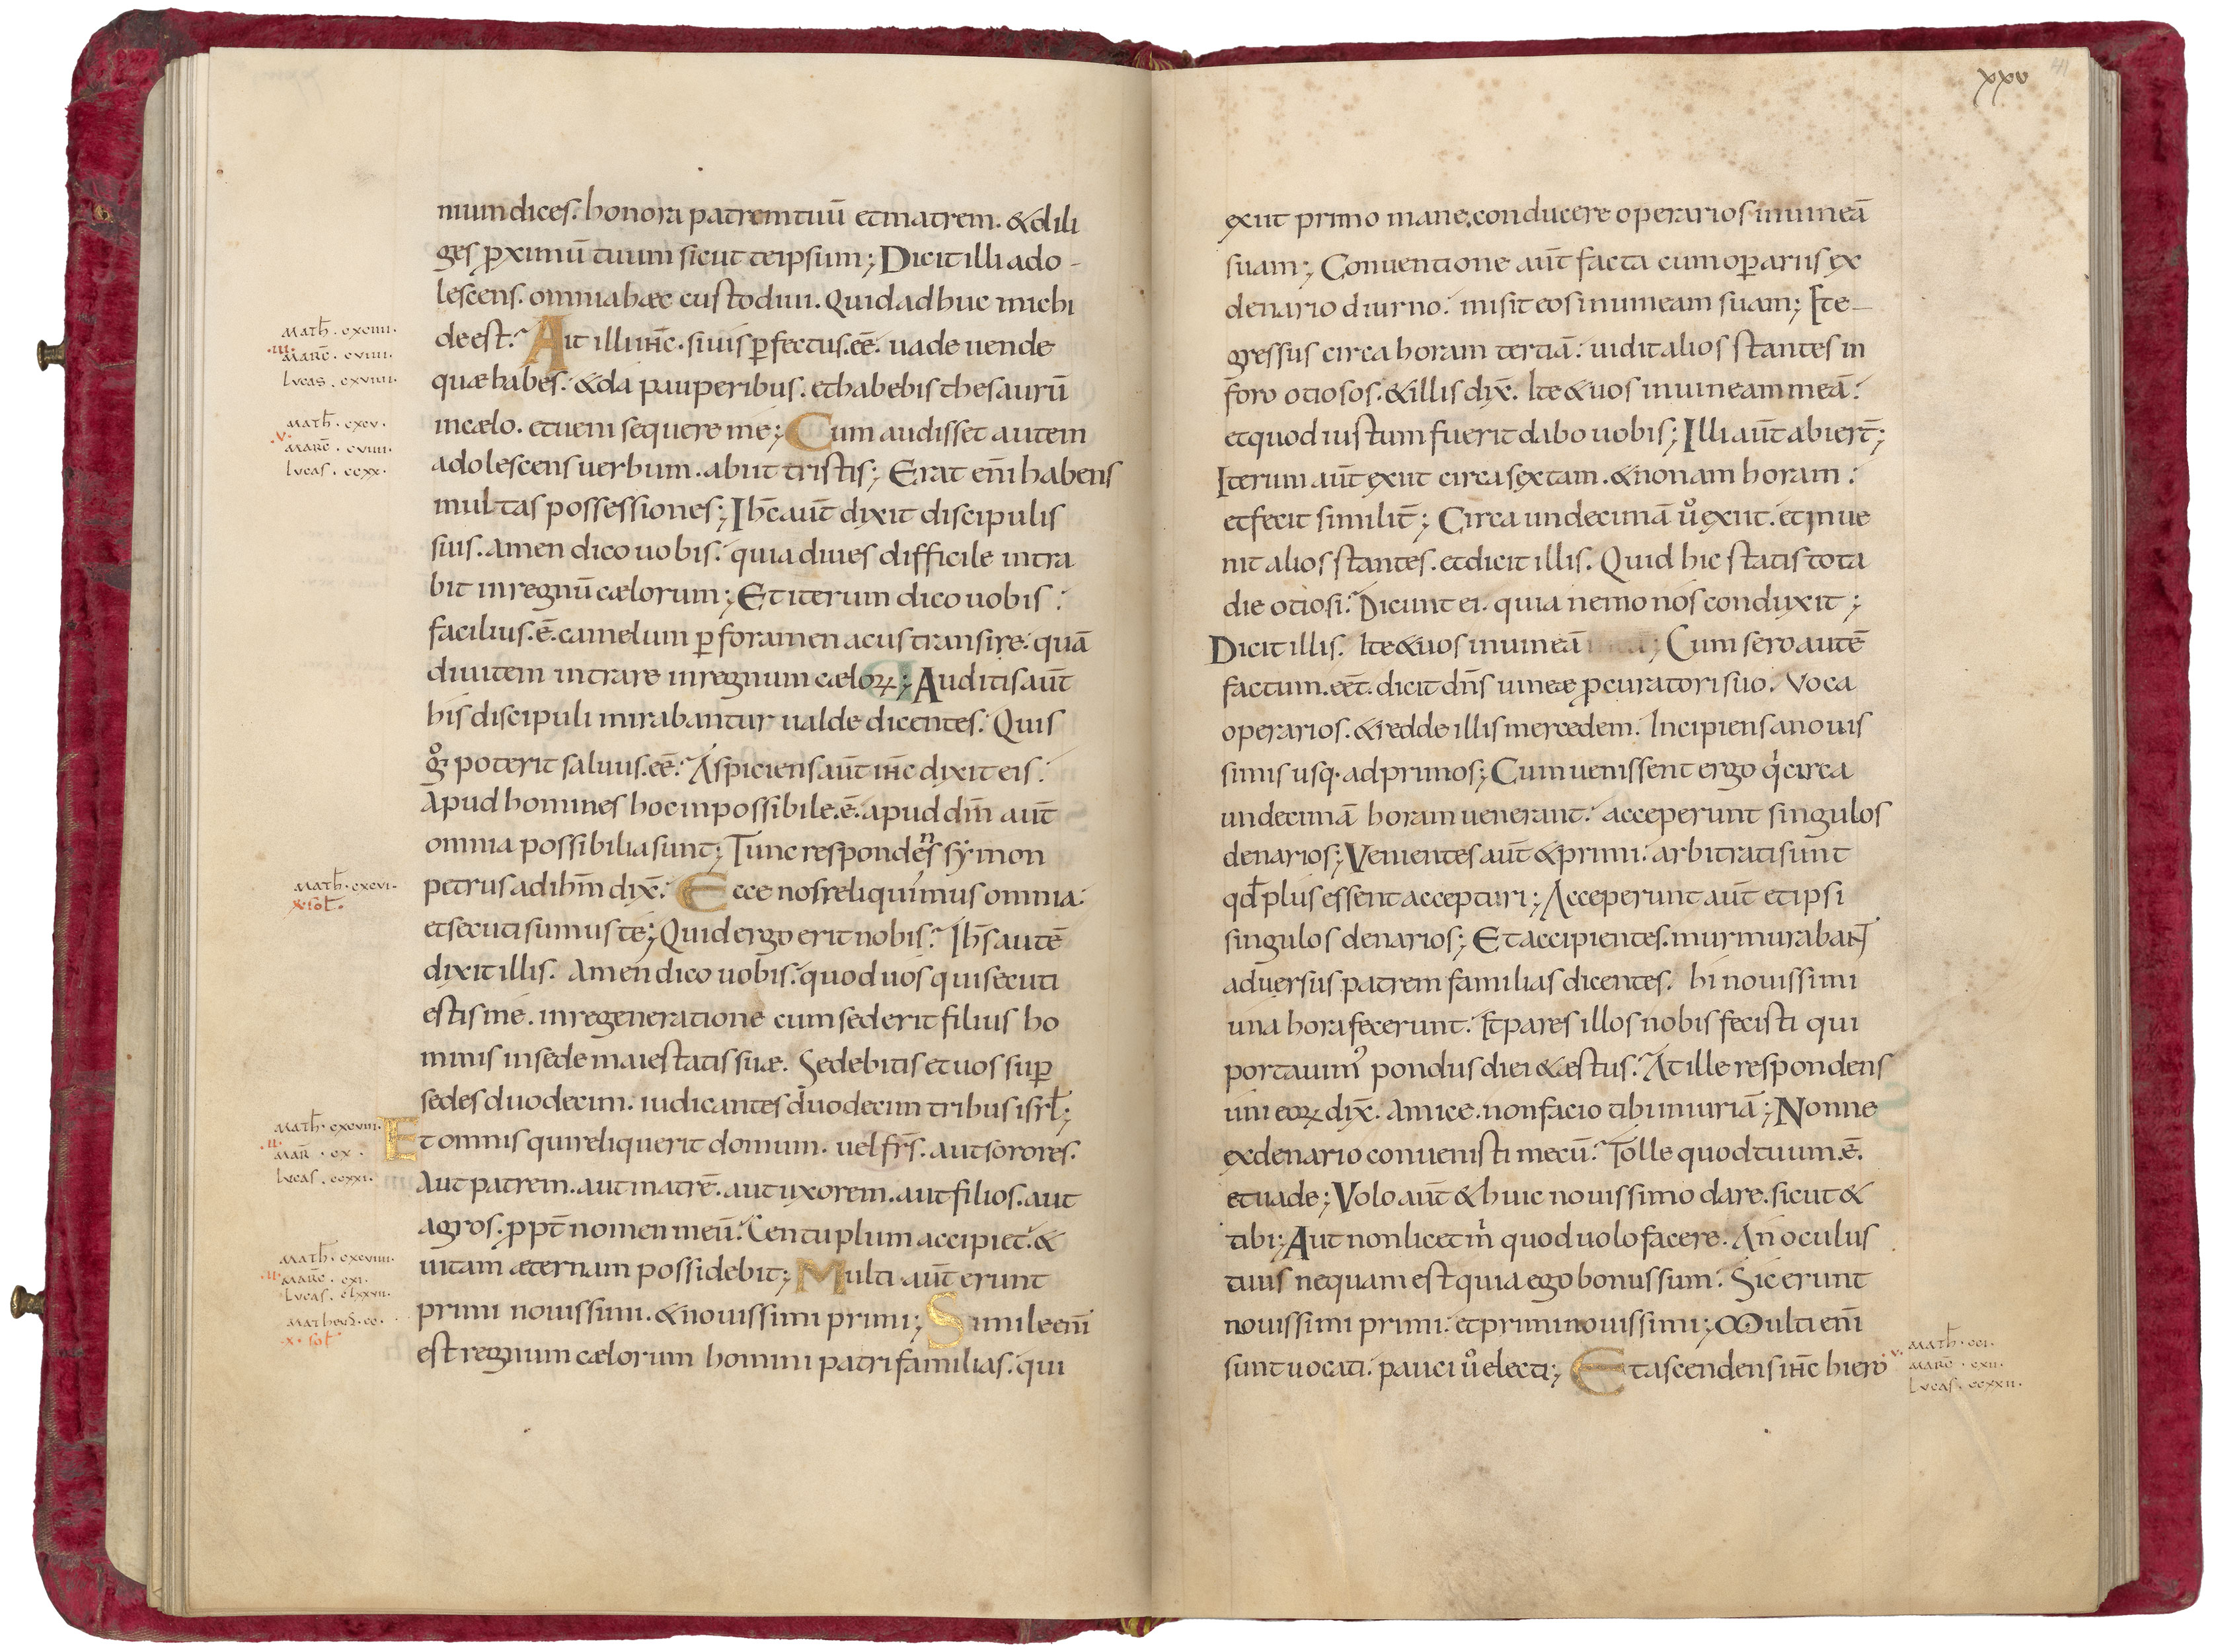 nium dices. honora patrem tuū et matrem. & dili
ges ꝓximū tuum sicut te ipsum; Dicit illi ado-
lescens. omnia hæc custodiui. Quid adhuc michi
de est? Ait illi ihc. si uis ꝑfectus. eē. uade uende
quæ habes. & da pauperibus. et habebis thesaurū
in cælo. et ueni sequere me; Cum audisset autem
adolescens uerbum. abiit tristis; Erat enī habens
multas possessiones; Ihc aut̄ dixit discipulis
suis. Amen dico uobis. quia diues difficile intra
bit in regnū cælorum; Et iterum dico uobis.
facilius. ē. camelum ꝑ foramen acus transire. quā
diuitem intrare in regnum cæloꝝ; Auditis aut̄
his discipuli mirabantur ualde dicentes. Quis
gͦ poterit saluus. eē. Aspiciens aut̄ ihc dixit eis.
Apud homines hoc inpossibile. ē. apud dm̄ aut̄
omnia possibilia sunt; Tunc respondens symon
petrus ad ihm̄ dix̄. Ecce nos reliquimus omnia.
et secuti sumus te; Quid ergo erit nobis? Ihs autē
dixit illis. Amen dico uobis. quod uos qui secuti
estis me. in regeneratione cum sederit filius ho
minis in sede maiestatis suæ. Sedebitis et uos suꝑ
sedes duodecim. iudicantes duodecim tribus isrł;
Et omnis qui reliquerit domum. uel fr̄s. aut sorores.
Aut patrem. aut matrē. aut uxorem. aut filios. aut
agros. ꝓpt̄ nomen meū. Centuplum accipiet. &
uitam æternam possidebit; Multi aut̄ erunt
primi nouissimi. & nouissimi primi; Simile enī
est regnum cælorum homini patri familias. qui
Math̄. cxciiii.
.ii.
Marc̄. cviiii.
Lucas. cxviiii.
Math̄. cxcv.
.v.
Marc̄. cviiii.
Lucas. ccxx.
Math̄. cxcvi.
x. sol̄.
Math̄. cxcviii.
.ii.
Mar̄. cx.
Lucas. ccxxi.
Math̄. cxcviiii.
.ii.
Marc̄. cxi.
Lucas. clxxvii.
Matheus. cc.
.x. sol̄
xxv
41
exiit primo mane. conducere operarios in uineā
suam; Conuentione aut̄ facta cum oꝑariis ex
denario diurno. misit eos in uineam suam; Et e-
gressus circa horam tertiā. uidit alios stantes in
foro otiosos. & illis dix̄. Ite & uos in uineam meā.
et quod iustum fuerit dabo uobis; Illi aut̄ abiert̄;
Iterum aut̄ exiit circa sextam. & nonam horam.
et fecit similit̄; Circa undecimā uͦ exiit. et inue
nit alios stantes. et dicit illis. Quid hic statis tota
die otiosi? Dicunt ei. quia nemo nos conduxit;
Dicit illis. Ite & uos in uineā meā; Cum sero autē
factum. eēt. dicit dn̄s uineæ ꝓcuratori suo. Voca
operarios. & redde illis mercedem. Incipiens a nouis
simis usq. ad primos; Cum uenissent ergo qͥ circa
undecimā horam uenerant. acceperunt singulos
denarios; Venientes aut̄ & primi. arbitrati sunt
qđ plus essent accepturi; Acceperunt aut̄ et ipsi
singulos denarios; Et accipientes. murmurabant
aduersus patrem familias dicentes. hi nouissimi
una hora fecerunt. Et pares illos nobis fecisti qui
portauim᾽ pondus diei & æstus. At ille respondens
uni eoꝝ dix̄. Amice. non facio tibi iniuriā; Nonne
ex denario conuenisti mecū? Tolle quod tuum. ē.
et uade; Volo aut̄ & huic nouissimo dare. sicut &
tibi; Aut non licet mͥ quod uolo facere. An oculus
tuus nequam est quia ego bonus sum. Sic erunt
nouissimi primi. et primi nouissimi; Multi enī
sunt uocati. pauci uͦ electi; Et ascendens ihc hiero
.v.
Math̄. cci.
Marc̄. cxii.
Lucas. ccxxii.